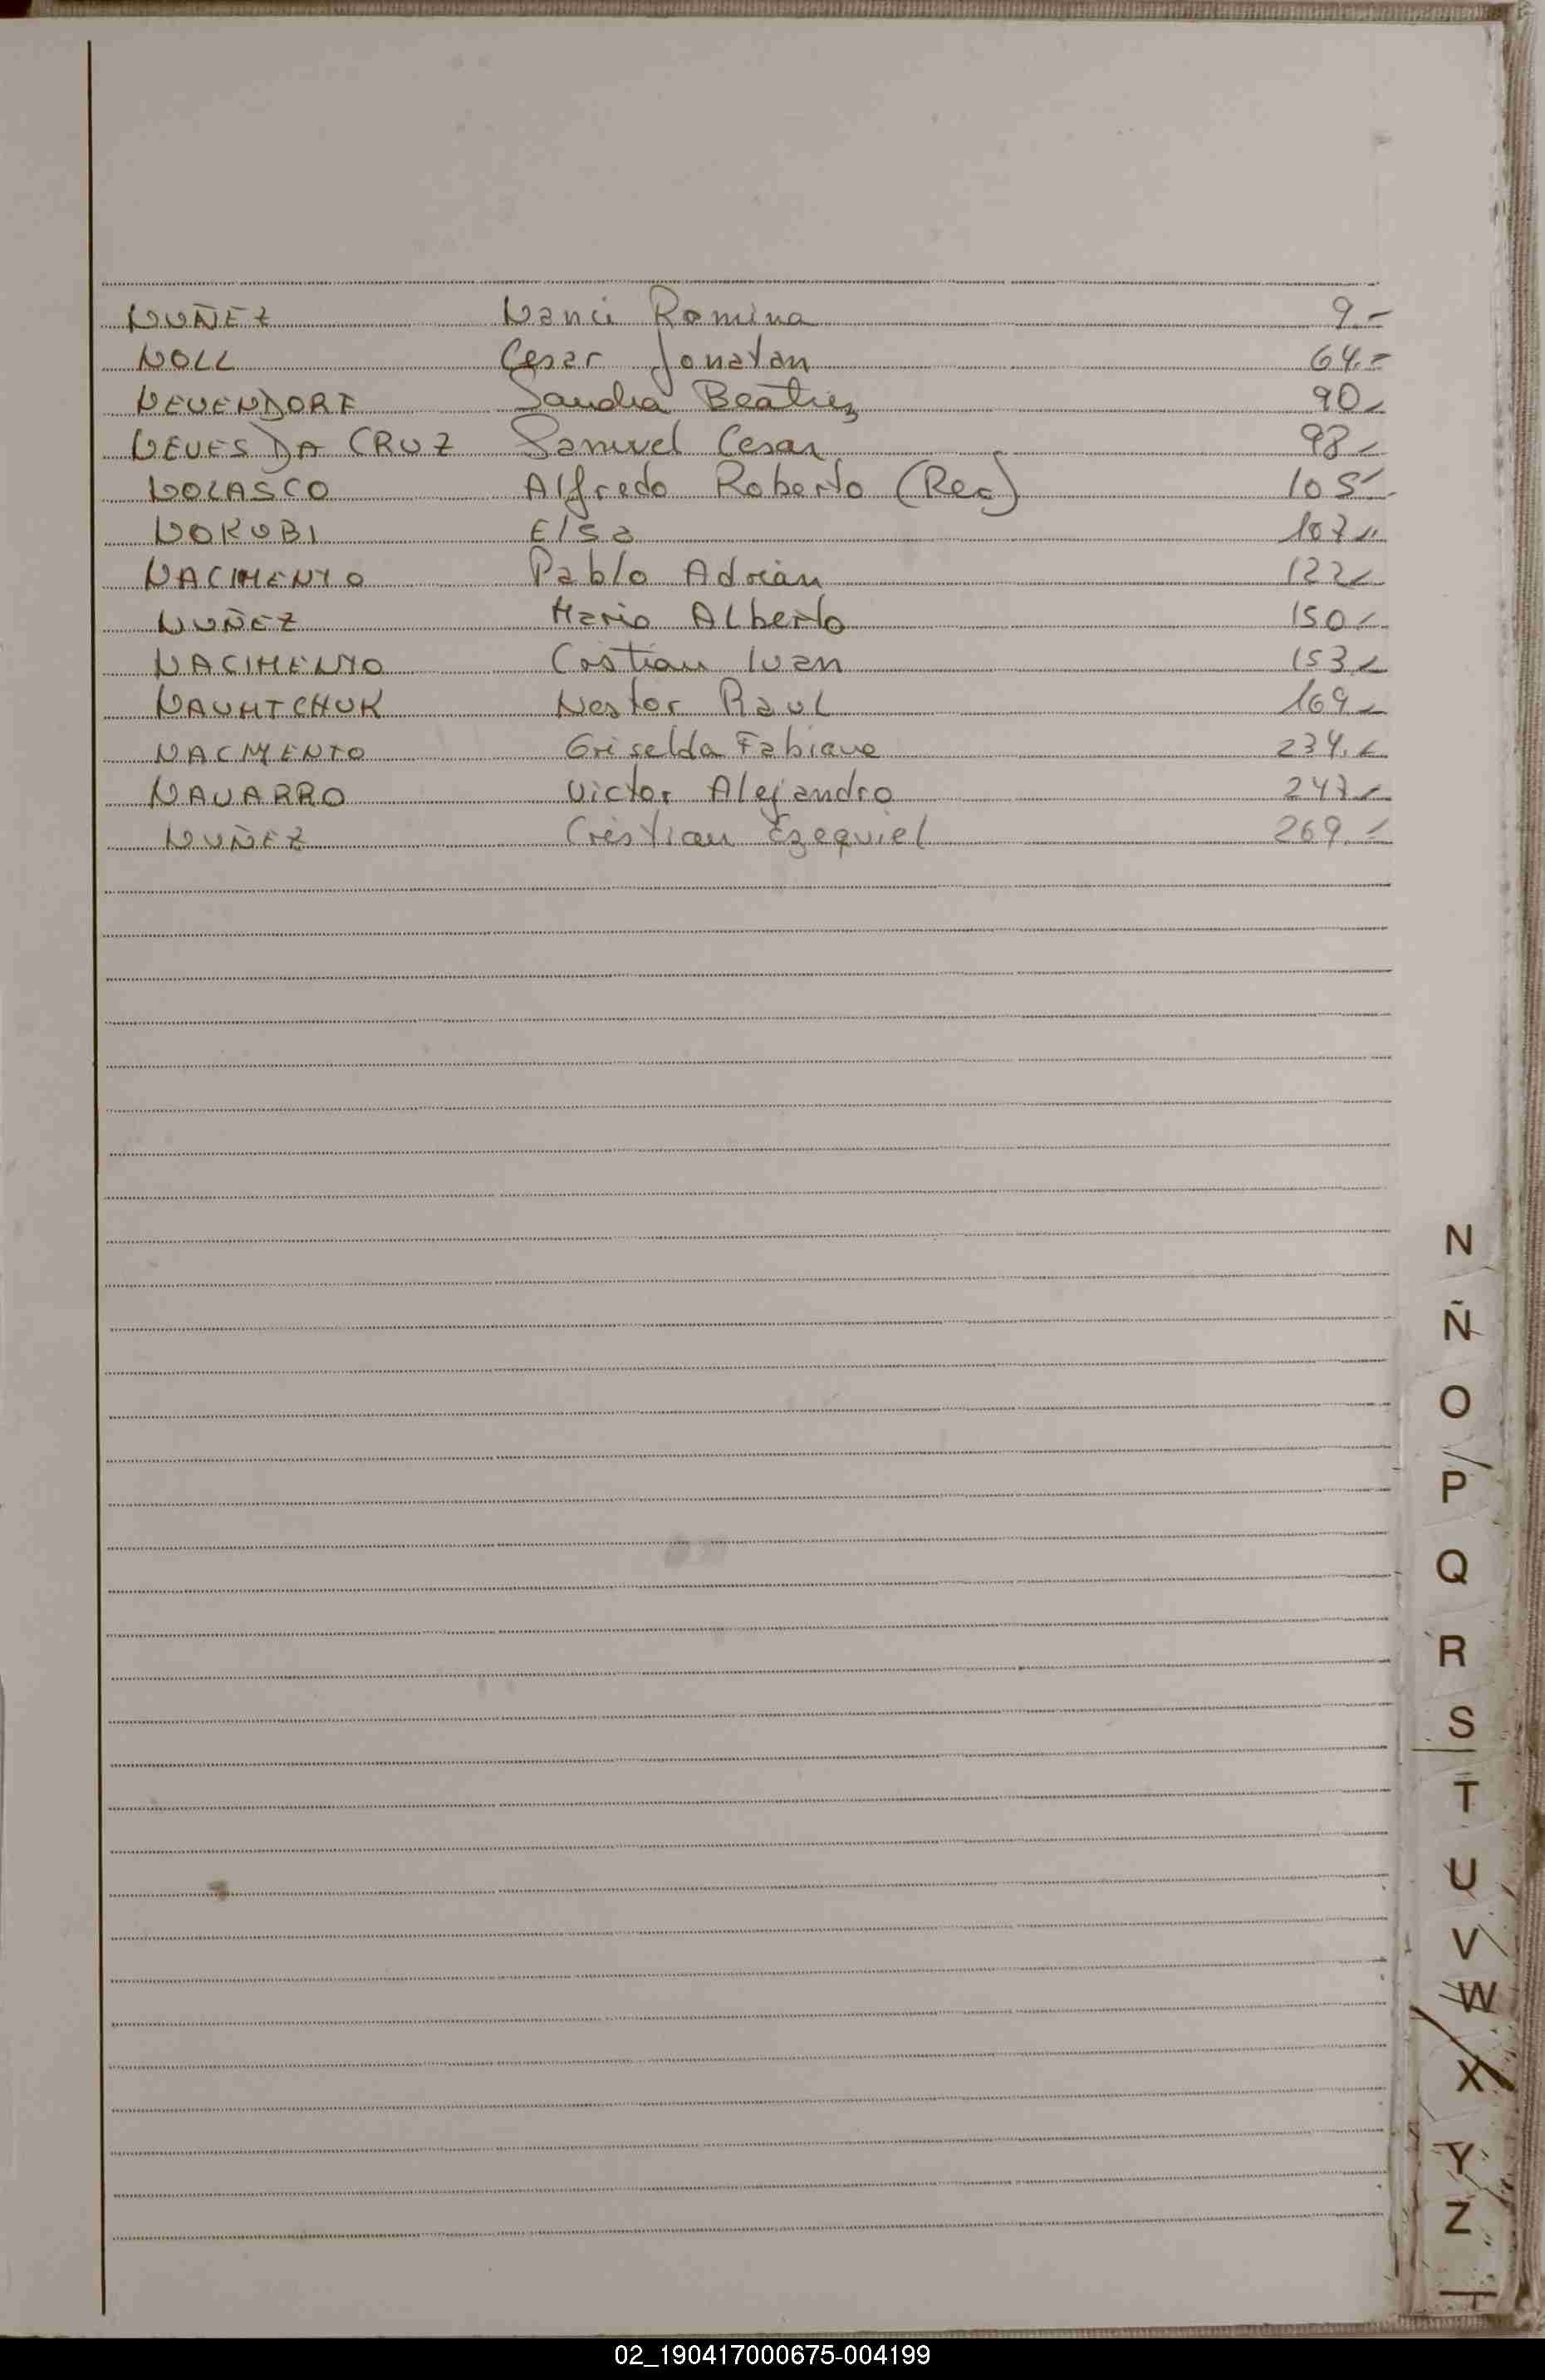 NUÑEZ Nanci Romina 9.-
NOLL Cesar Jonatan 64.-
NEUENDORF Sandra Beatriz 90.-
NEVES DA CRUZ Samuel Cesar 98.-
NOLASCO Alfredo Roberto (Rec) 105.-
NOKUBI Elsa 107.-
NACIMENTO Pablo Adrian 122.-
NUÑEZ Mario Alberto 150.-
NACIMENTO Cristian Ivan 153.-
NAUMTCHUK Nestor Raul 169.-
NACIMENTO Griselda Fabiana 234.-
NAVARRO Victor Alejandro 247.-
NUÑEZ Cristian Ezequiel 269.-
N
Ñ
O
P
Q
R
S
T
U
V
W
X
Y
Z
02_190417000675-004199